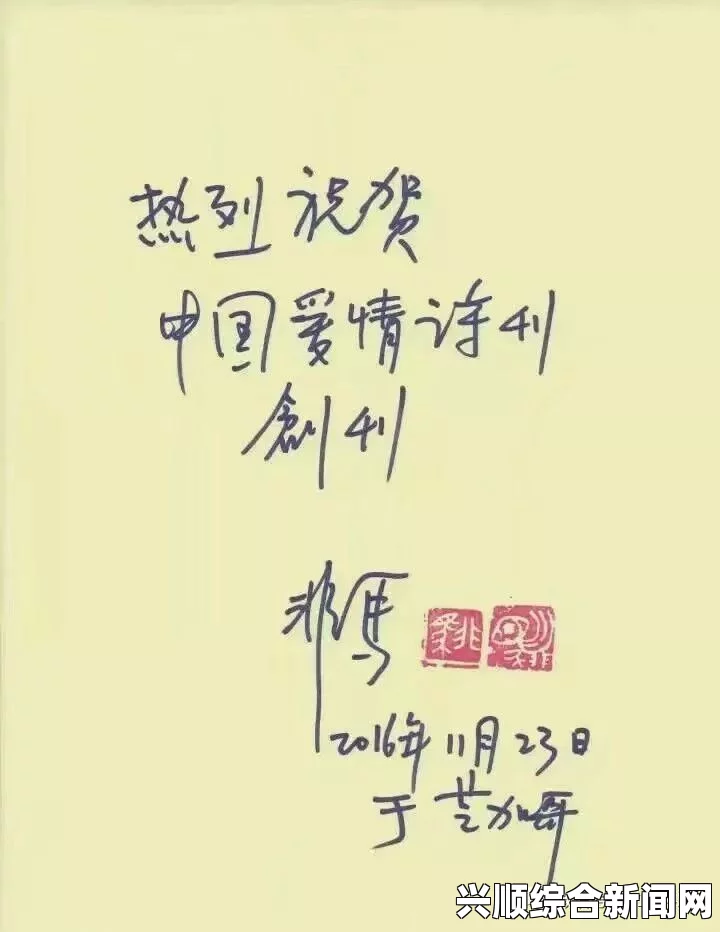 热列祝贺
中国爱情诗刊
創刊
非馬
2016年11月23日
于芝加哥
兴顺综合新闻网